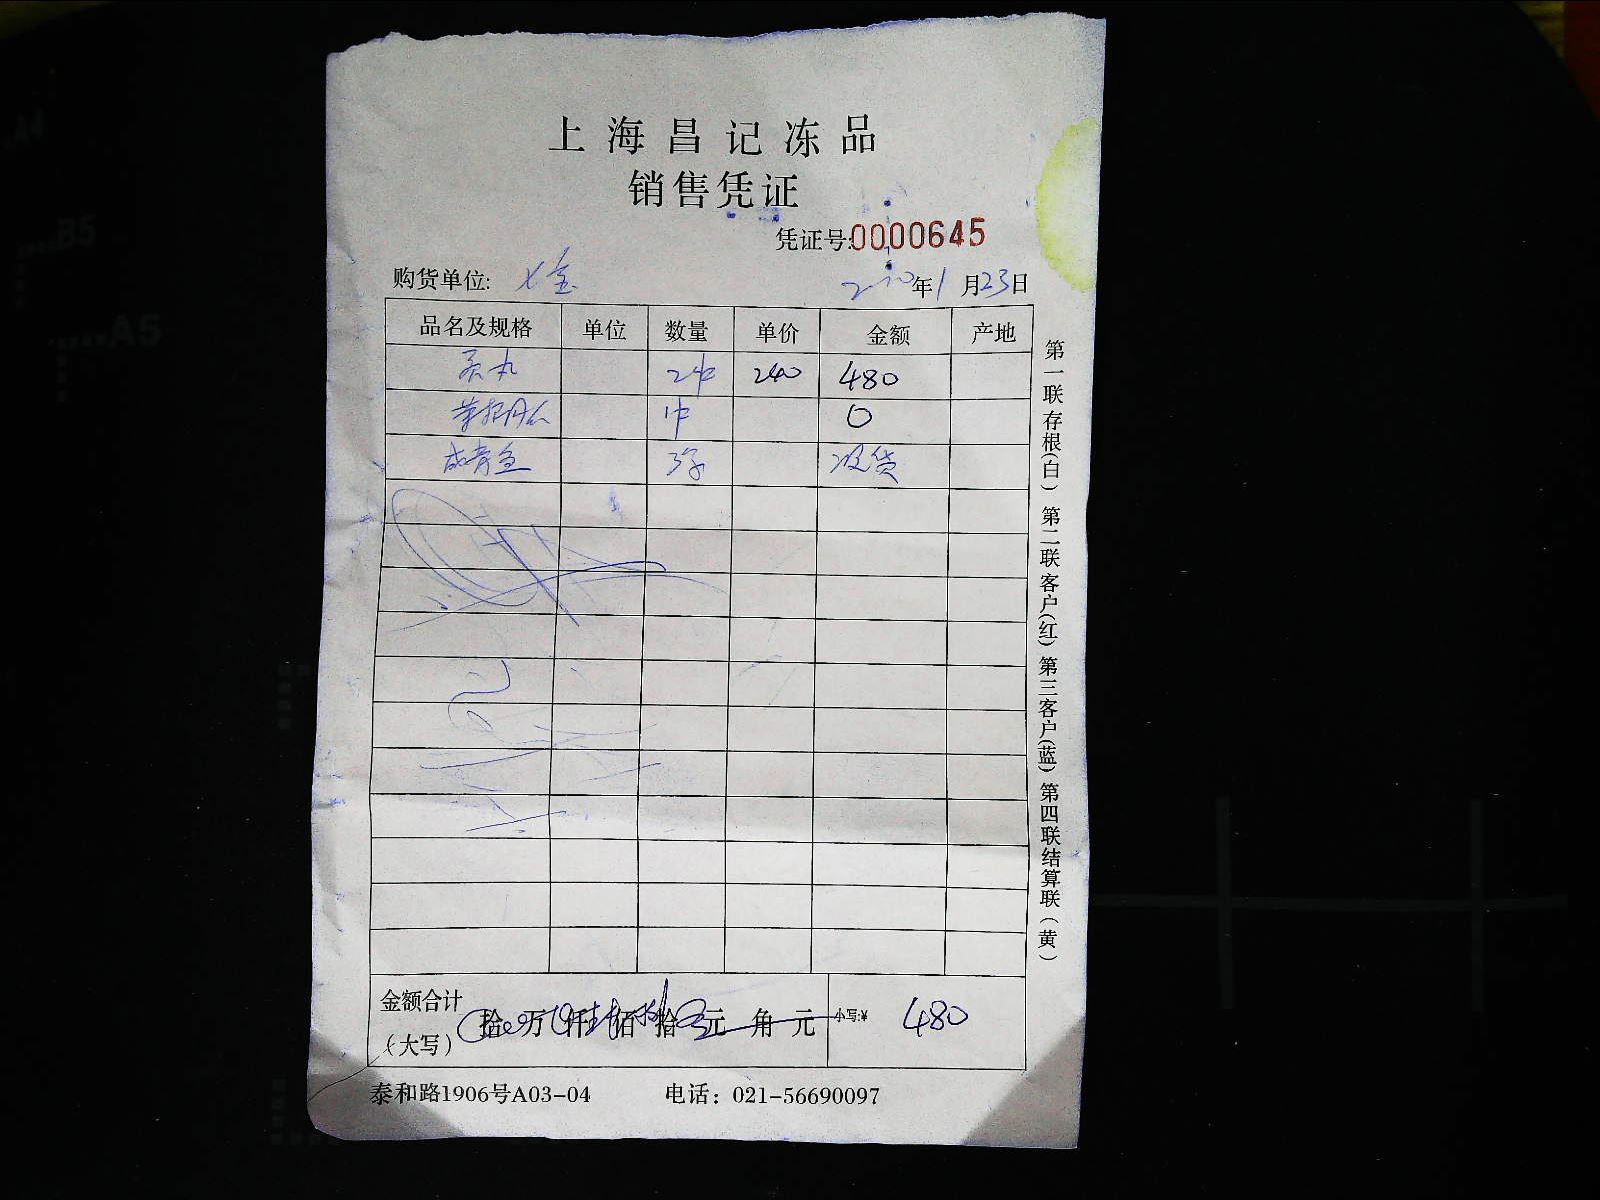 上海昌记冻品
销售凭证
凭证号:0000645
购货单位:
年1月23日
品名及规格 单位 数量 单价 金额 产地
2件 240 480
1件 0
没货
金额合计
(大写)
拾 万 仟 佰 拾 元 角 元 小写:¥ 480
泰和路1906号A03-04 电话：021-56690097
第一联存根(白) 第二联客户(红) 第三客户(蓝) 第四联结算联(黄)
A4
B5
A5